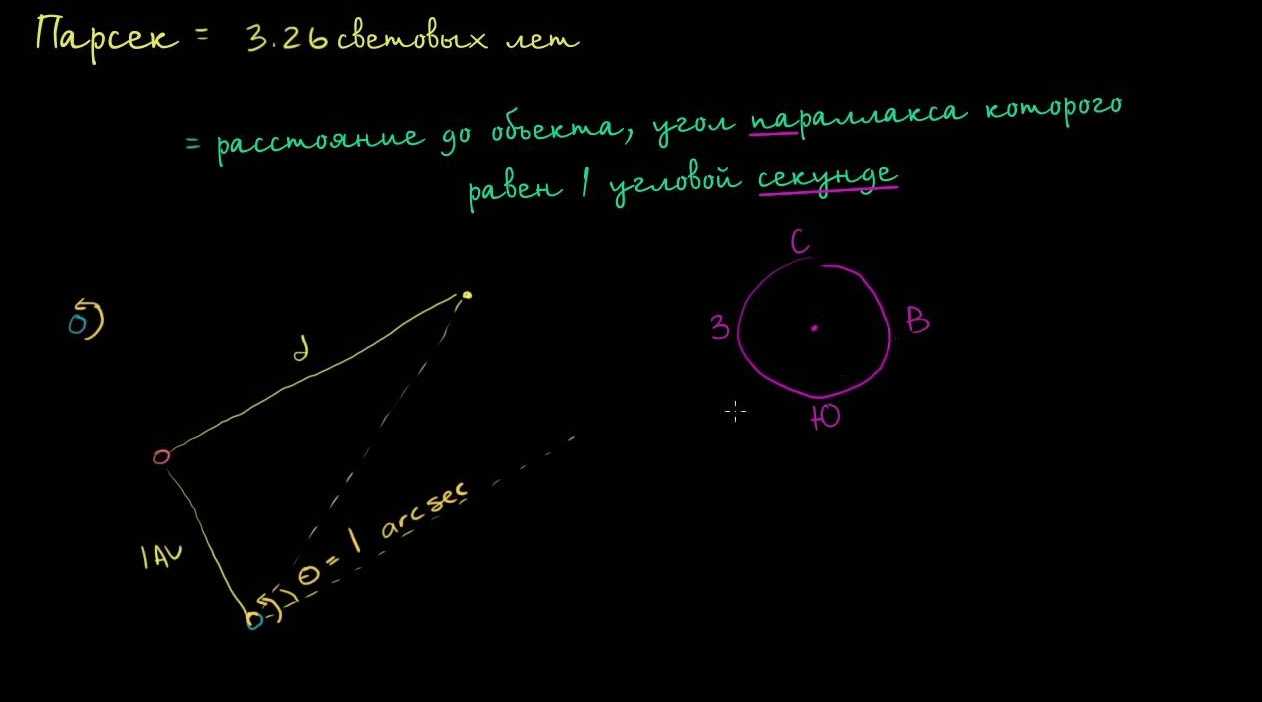 Парсек = 3.26 световых лет
= расстояние до объекта, угол параллакса которого
равен 1 угловой секунде
С
З
В
Ю
d
1AU
Θ = 1 arcsec